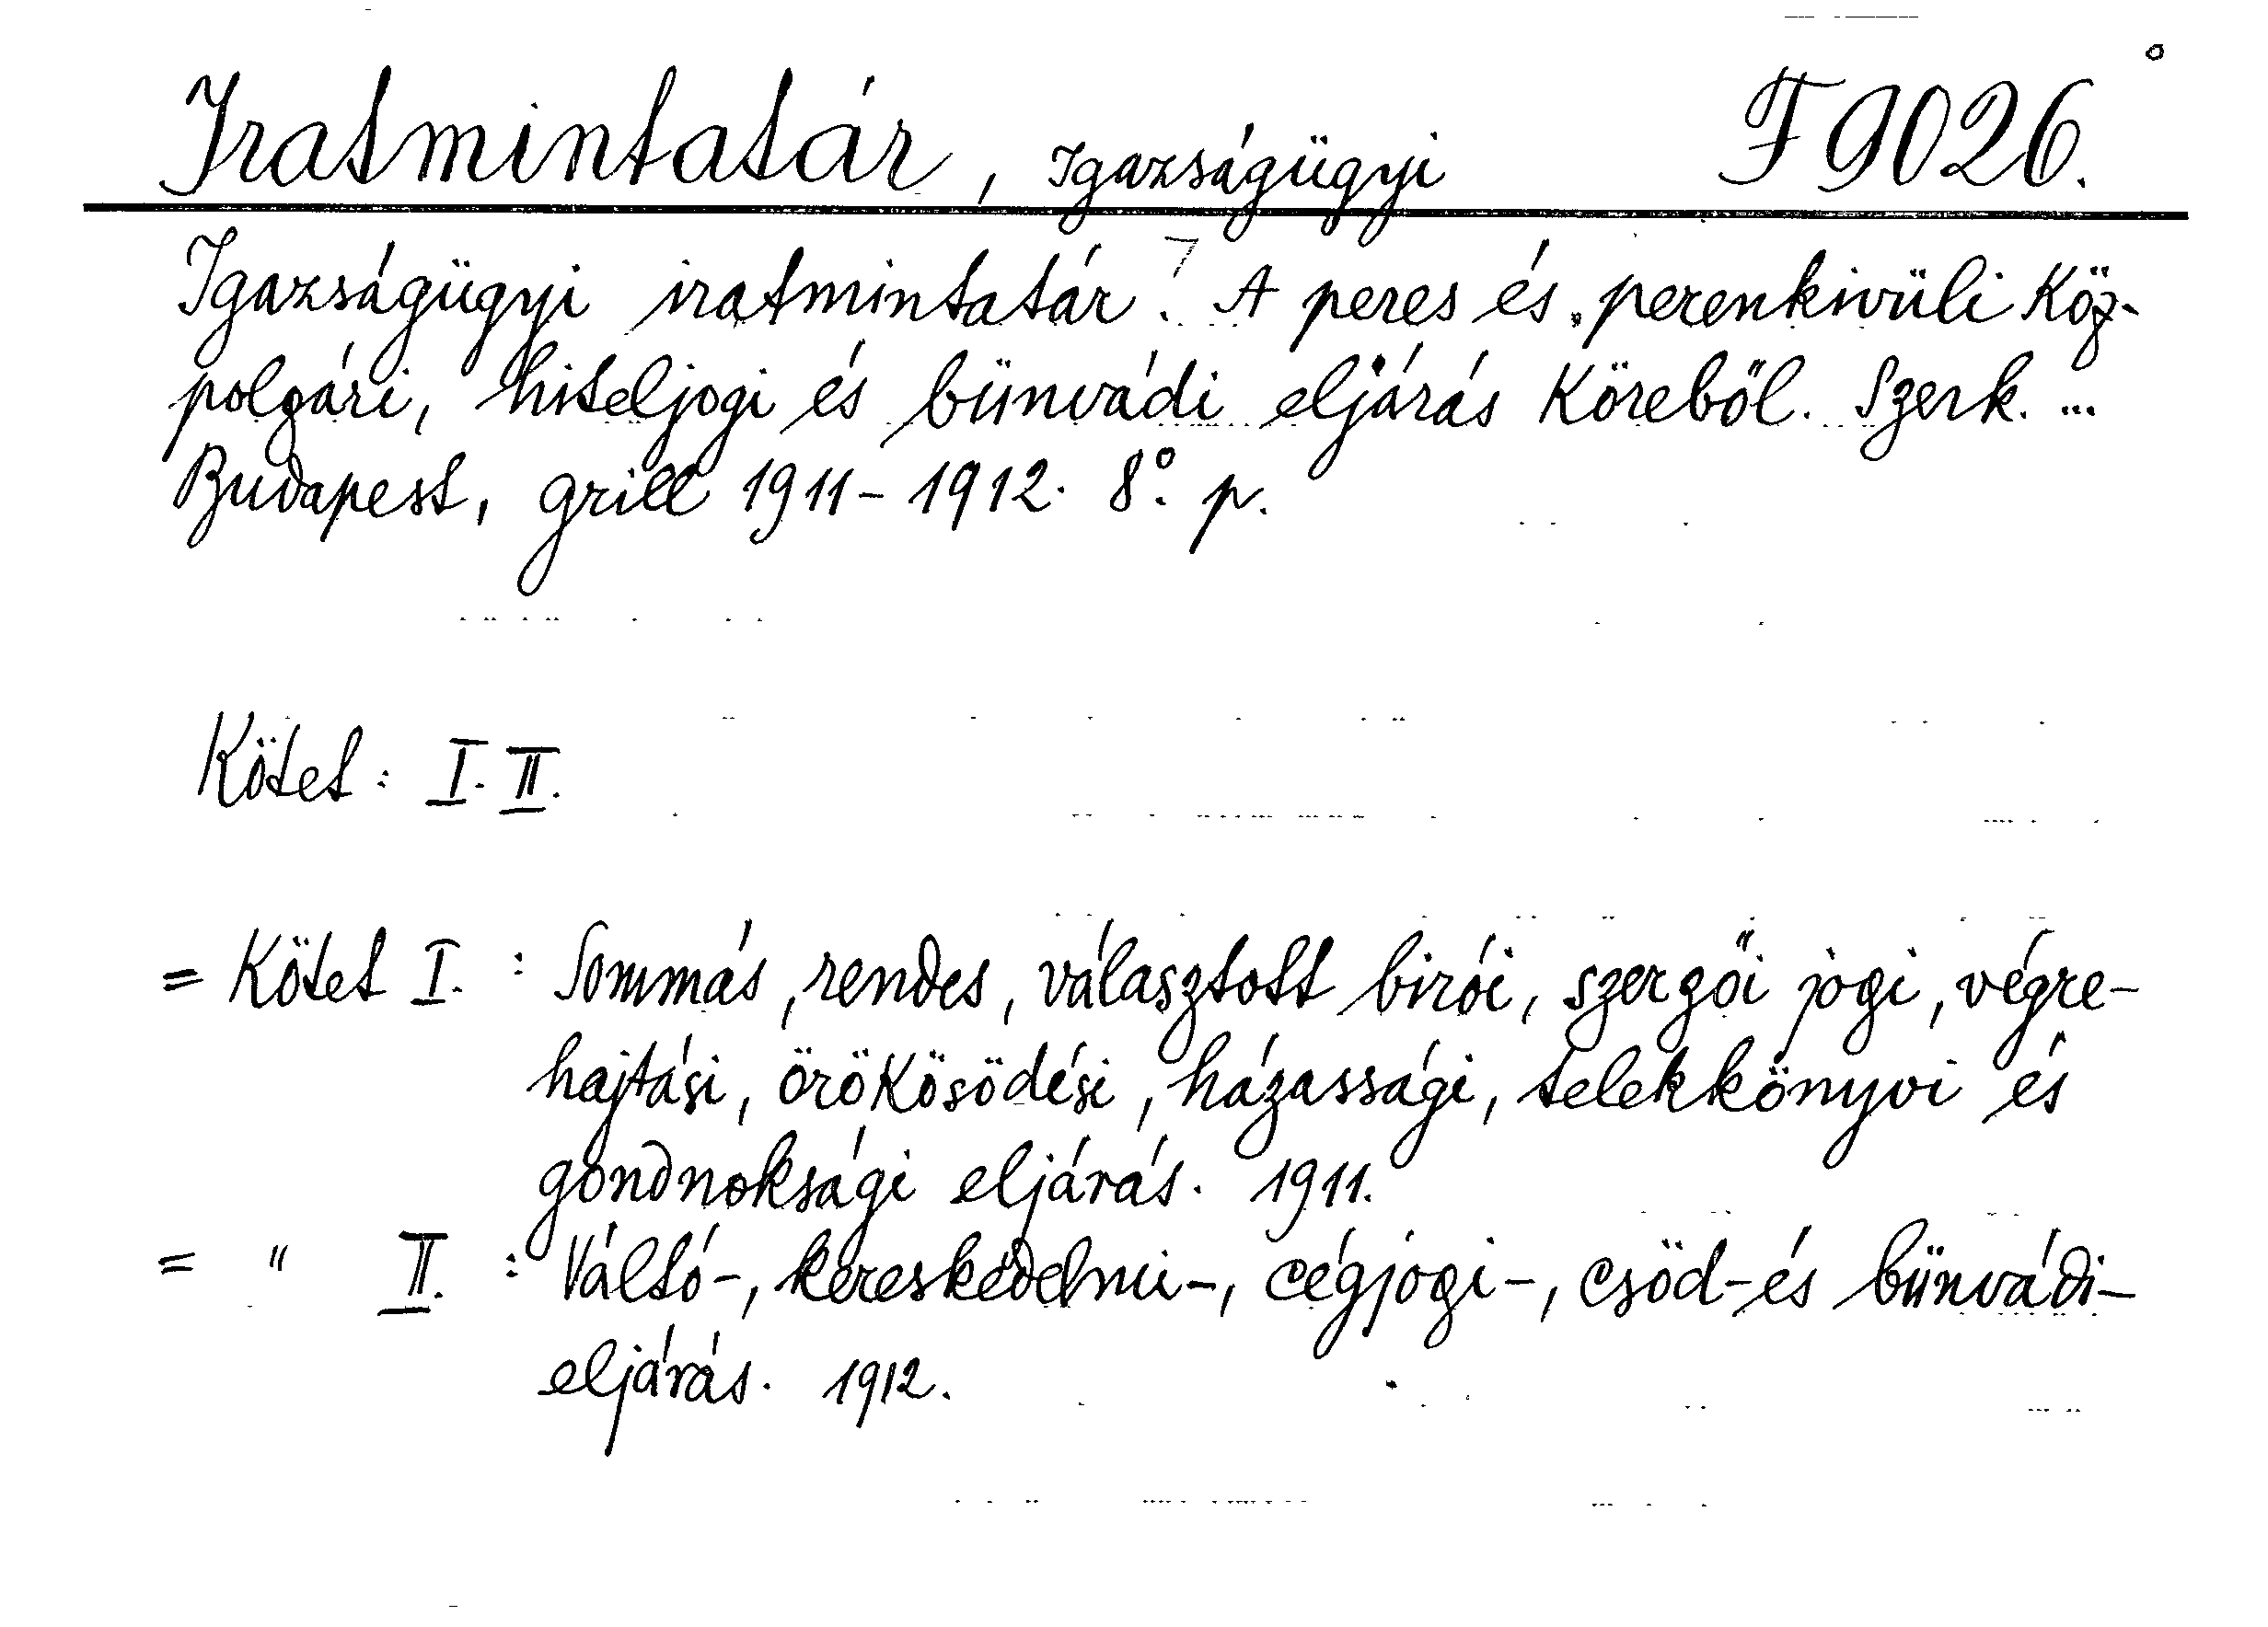 Iratmintatár, Igazságügyi F 9026.
Igazságügyi iratmintatár. A peres és perenkivüli köz-
polgári, hiteljogi és bünvádi eljárás köréből. Szerk. ...
Budapest, Grill 1911-1912. 8° p.
Kötet: I. II.
= Kötet I. : Sommás, rendes, választott birói, szerzői jogi, végre-
hajtási, örökösödési, házassági, telekkönyvi és
gondnoksági eljárás. 1911.
= " II. : Váltó-, kereskedelmi-, cégjogi-, csöd- és bünvádi-
eljárás. 1912.